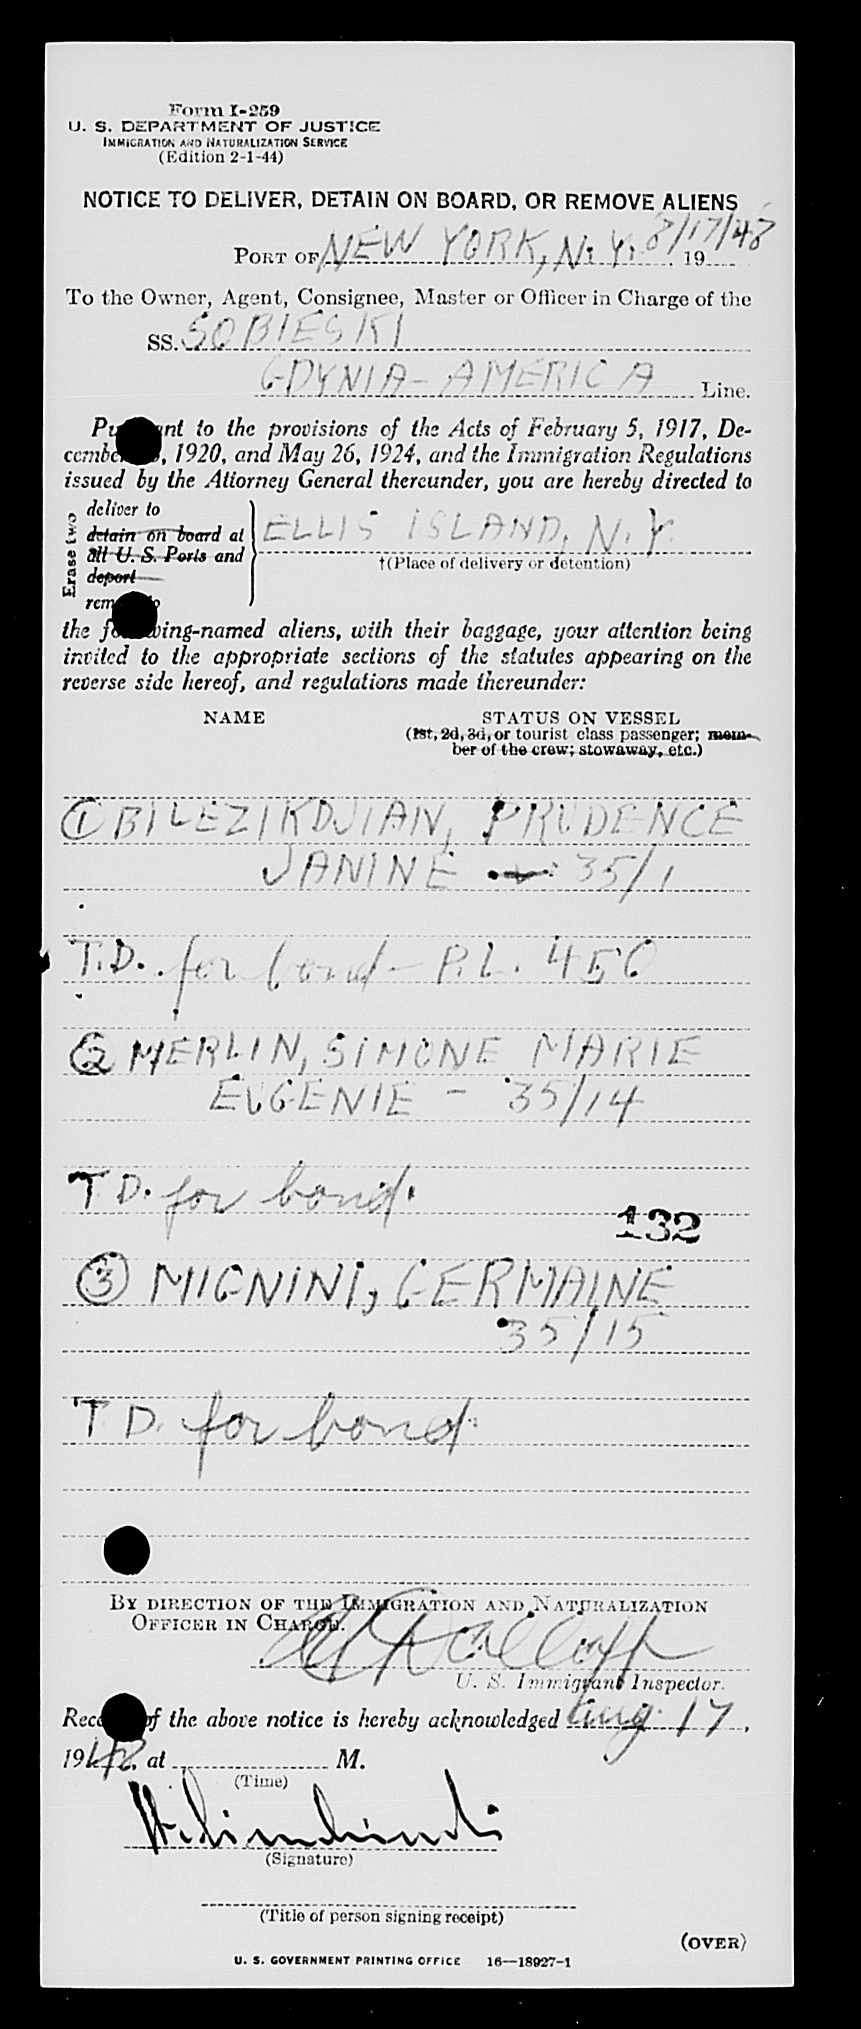 Form I-259
U. S. DEPARTMENT OF JUSTICE
IMMIGRATION AND NATURALIZATION SERVICE
(Edition 2-1-44)
NOTICE TO DELIVER, DETAIN ON BOARD, OR REMOVE ALIENS
PORT OF NEW YORK, N. Y. 8/17/48 19
To the Owner, Agent, Consignee, Master or Officer in Charge of the
SS. SOBIESKI
GDYNIA-AMERICA Line.
Pu nt to the provisions of the Acts of February 5, 1917, De-
cembe , 1920, and May 26, 1924, and the Immigration Regulations
issued by the Attorney General thereunder, you are hereby directed to
Erase two
deliver to
detain on board at
all U. S. Ports and
deport
rem o
ELLIS ISLAND, N. Y.
†(Place of delivery or detention)
the fo wing-named aliens, with their baggage, your attention being
invited to the appropriate sections of the statutes appearing on the
reverse side hereof, and regulations made thereunder:
NAME STATUS ON VESSEL
(1st, 2d, 3d, or tourist class passenger; mem-
ber of the crew; stowaway, etc.)
① BILEZIKDJIAN, PRUDENCE
JANINE - 35/1
T.D. for bond - P.L. 450
② MERLIN, SIMONE MARIE
EUGENIE - 35/14
T D. for bond.
132
③ MIGNINI, GERMAINE
35/15
T D. for bond
BY DIRECTION OF THE IMMIGRATION AND NATURALIZATION
OFFICER IN CHARGE.
U. S. Immigrant Inspector.
Rece of the above notice is hereby acknowledged Aug. 17,
1948, at M.
(Time)
(Signature)
(Title of person signing receipt)
(OVER)
U. S. GOVERNMENT PRINTING OFFICE 16—18927-1